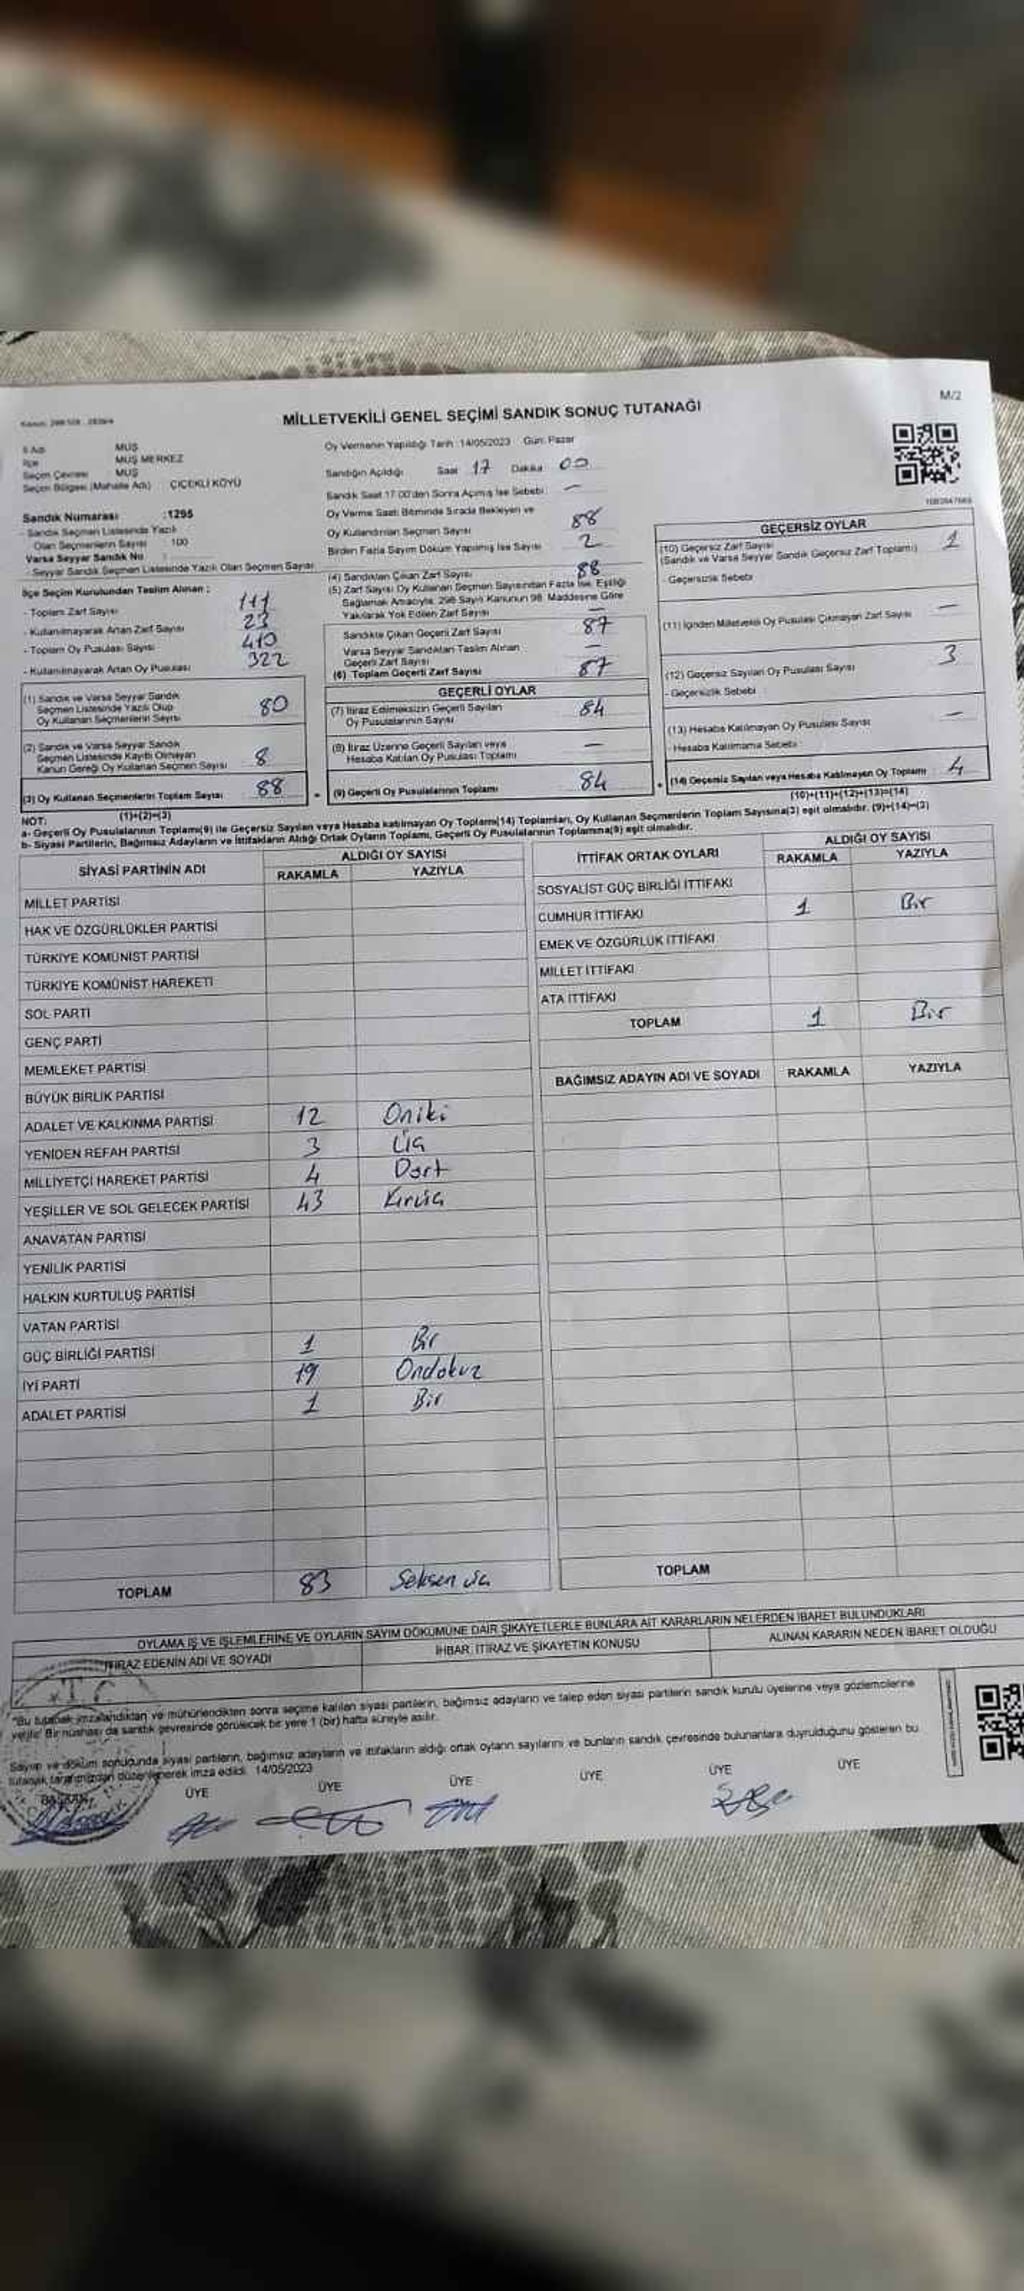 M/2
MİLLETVEKİLİ GENEL SEÇİMİ SANDIK SONUÇ TUTANAĞI
İl Adı MUŞ
İlçe MUŞ MERKEZ
Seçim Çevresi MUŞ
Seçim Bölgesi (Mahalle Adı) ÇİÇEKLİ KÖYÜ
Sandık Numarası :1295
- Sandık Seçmen Listesinde Yazılı
Olan Seçmenlerin Sayısı 100
Varsa Seyyar Sandık No :
- Seyyar Sandık Seçmen Listesinde Yazılı Olan Seçmen Sayısı
İlçe Seçim Kurulundan Teslim Alınan :
- Toplam Zarf Sayısı 111
- Kullanılmayarak Artan Zarf Sayısı 23
- Toplam Oy Pusulası Sayısı 410
- Kullanılmayarak Artan Oy Pusulası 322
(1) Sandık ve Varsa Seyyar Sandık
Seçmen Listesinde Yazılı Olup
Oy Kullanan Seçmenlerin Sayısı 80
(2) Sandık ve Varsa Seyyar Sandık
Seçmen Listesinde Kayıtlı Olmayan
Kanun Gereği Oy Kullanan Seçmen Sayısı 8
(3) Oy Kullanan Seçmenlerin Toplam Sayısı 88
(1)+(2)=(3)
Oy Vermenin Yapıldığı Tarih :14/05/2023 Gün: Pazar
Sandığın Açıldığı Saat 17 Dakika 00
Sandık Saat 17.00'den Sonra Açılmış İse Sebebi : —
Oy Verme Saati Bitiminde Sırada Bekleyen ve
Oy Kullandırılan Seçmen Sayısı 88
Birden Fazla Sayım Döküm Yapılmış İse Sayısı 2
(4) Sandıktan Çıkan Zarf Sayısı 88
(5) Zarf Sayısı Oy Kullanan Seçmen Sayısından Fazla İse, Eşitliği
Sağlamak Amacıyla, 298 Sayılı Kanunun 98. Maddesine Göre
Yakılarak Yok Edilen Zarf Sayısı —
Sandıkta Çıkan Geçerli Zarf Sayısı 87
Varsa Seyyar Sandıktan Teslim Alınan
Geçerli Zarf Sayısı —
(6) Toplam Geçerli Zarf Sayısı 87
GEÇERLİ OYLAR
(7) İtiraz Edilmeksizin Geçerli Sayılan
Oy Pusulalarının Sayısı 84
(8) İtiraz Üzerine Geçerli Sayılan veya
Hesaba Katılan Oy Pusulası Toplamı —
(9) Geçerli Oy Pusulalarının Toplamı 84
GEÇERSİZ OYLAR
(10) Geçersiz Zarf Sayısı 1
(Sandık ve Varsa Seyyar Sandık Geçersiz Zarf Toplamı)
- Geçersizlik Sebebi
(11) İçinden Milletvekili Oy Pusulası Çıkmayan Zarf Sayısı —
(12) Geçersiz Sayılan Oy Pusulası Sayısı 3
- Geçersizlik Sebebi
(13) Hesaba Katılmayan Oy Pusulası Sayısı —
- Hesaba Katılmama Sebebi
(14) Geçersiz Sayılan veya Hesaba Katılmayan Oy Toplamı : 4
(10)+(11)+(12)+(13)=(14)
NOT:
a- Geçerli Oy Pusulalarının Toplamı(9) ile Geçersiz Sayılan veya Hesaba katılmayan Oy Toplamı(14) Toplamları, Oy Kullanan Seçmenlerin Toplam Sayısına(3) eşit olmalıdır. (9)+(14)=(3)
b- Siyasi Partilerin, Bağımsız Adayların ve İttifakların Aldığı Ortak Oyların Toplamı, Geçerli Oy Pusulalarının Toplamına(9) eşit olmalıdır.
SİYASİ PARTİNİN ADI ALDIĞI OY SAYISI
RAKAMLA YAZIYLA
MİLLET PARTİSİ
HAK VE ÖZGÜRLÜKLER PARTİSİ
TÜRKİYE KOMÜNİST PARTİSİ
TÜRKİYE KOMÜNİST HAREKETİ
SOL PARTİ
GENÇ PARTİ
MEMLEKET PARTİSİ
BÜYÜK BİRLİK PARTİSİ
ADALET VE KALKINMA PARTİSİ 12 Oniki
YENİDEN REFAH PARTİSİ 3 Üç
MİLLİYETÇİ HAREKET PARTİSİ 4 Dört
YEŞİLLER VE SOL GELECEK PARTİSİ 43 Kırküç
ANAVATAN PARTİSİ
YENİLİK PARTİSİ
HALKIN KURTULUŞ PARTİSİ
VATAN PARTİSİ
GÜÇ BİRLİĞİ PARTİSİ 1 Bir
İYİ PARTİ 19 Ondokuz
ADALET PARTİSİ 1 Bir
TOPLAM 83 Seksen üç
İTTİFAK ORTAK OYLARI ALDIĞI OY SAYISI
RAKAMLA YAZIYLA
SOSYALİST GÜÇ BİRLİĞİ İTTİFAKI
CUMHUR İTTİFAKI 1 Bir
EMEK VE ÖZGÜRLÜK İTTİFAKI
MİLLET İTTİFAKI
ATA İTTİFAKI
TOPLAM 1 Bir
BAĞIMSIZ ADAYIN ADI VE SOYADI RAKAMLA YAZIYLA
TOPLAM
OYLAMA İŞ VE İŞLEMLERİNE VE OYLARIN SAYIM DÖKÜMÜNE DAİR ŞİKAYETLERLE BUNLARA AİT KARARLARIN NELERDEN İBARET BULUNDUKLARI
İTİRAZ EDENİN ADI VE SOYADI İHBAR, İTİRAZ VE ŞİKAYETİN KONUSU ALINAN KARARIN NEDEN İBARET OLDUĞU
T.C.
"Bu tutanak imzalandıktan ve mühürlendikten sonra seçime katılan siyasi partilerin, bağımsız adayların ve talep eden siyasi partilerin sandık kurulu üyelerine veya gözlemcilerine
verilir. Bir nüshası da sandık çevresinde görülecek bir yere 1 (bir) hafta süreyle asılır.
Sayım ve döküm sonucunda siyasi partilerin, bağımsız adayların ve ittifakların aldığı ortak oyların sayılarını ve bunların sandık çevresinde bulunanlara duyurulduğunu gösteren bu
tutanak tarafımızdan düzenlenerek imza edildi. 14/05/2023
BAŞKAN ÜYE ÜYE ÜYE ÜYE ÜYE ÜYE